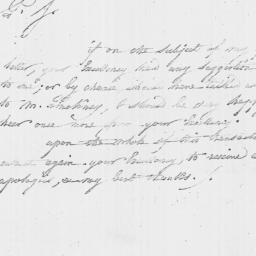 P. S.
if on the subject of my
letter, your Excellency had any suggestion
to me; or by chance should have talked
to Mr. , I should be very happy
hear once more from your Excellency.
upon the whole of this transaction
again your Excellency, to receive
apologies, & my best thanks.